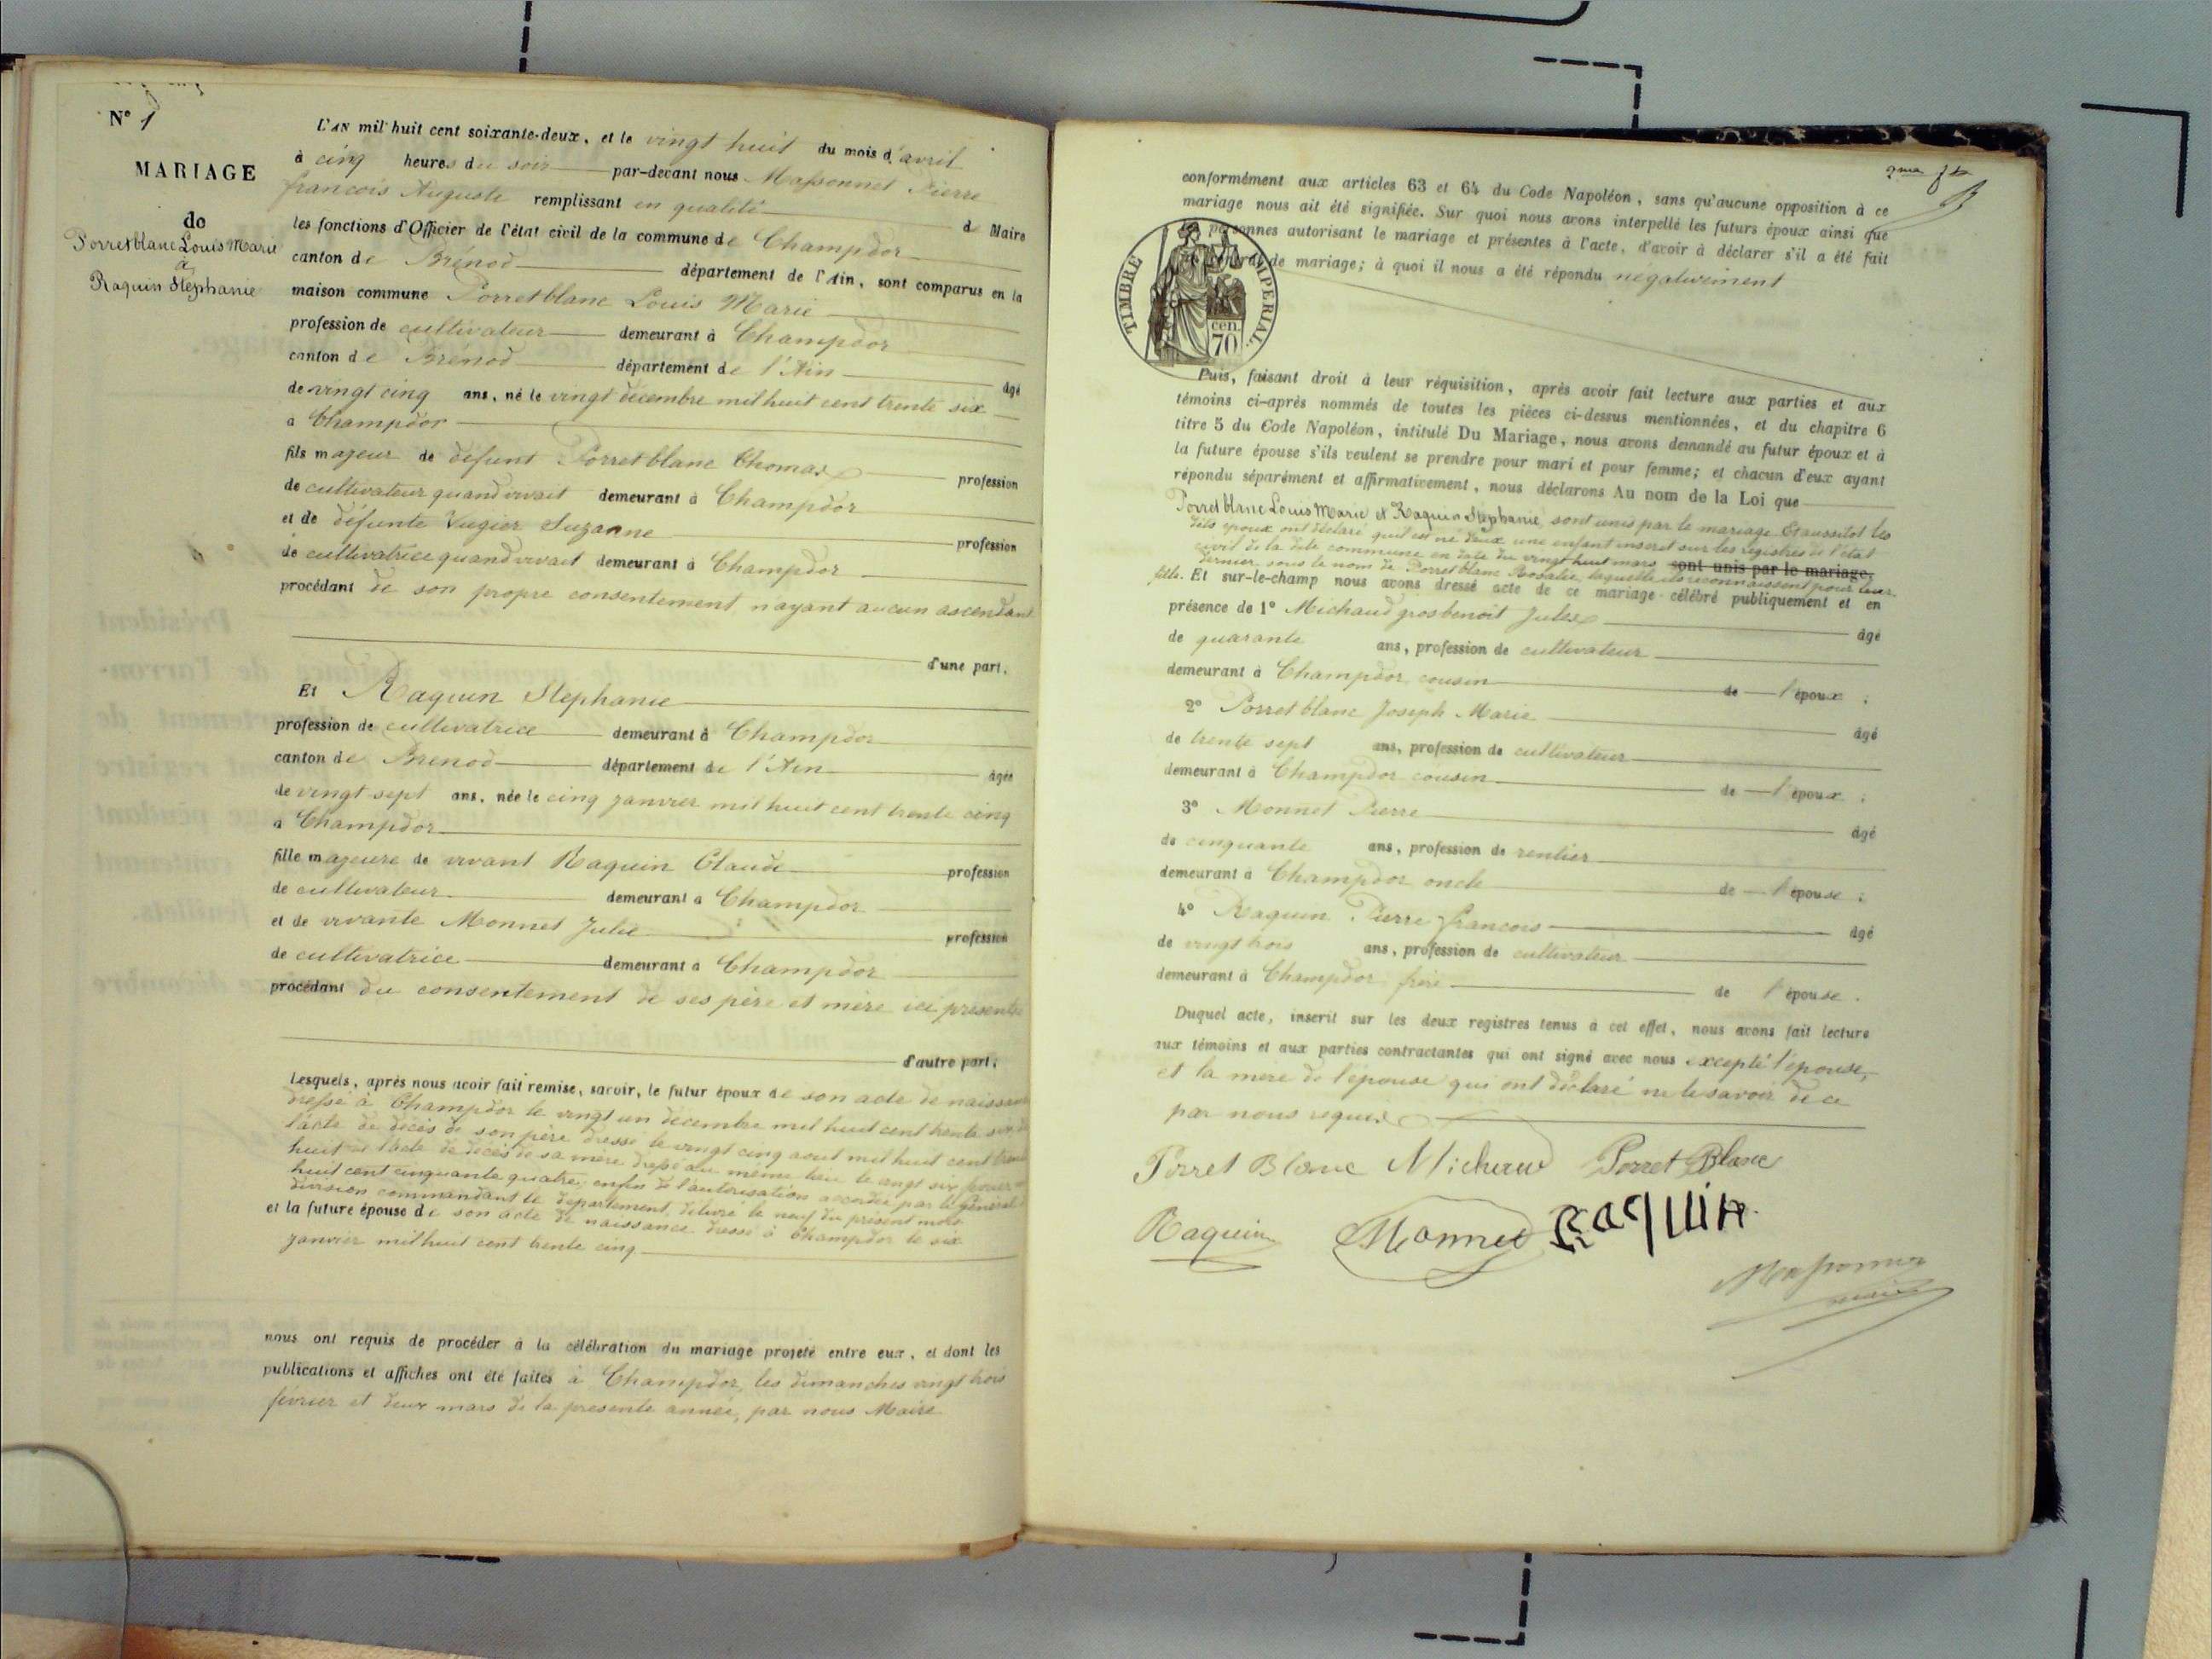 N° 1
MARIAGE
de
Porretblanc Louis Marie
à
Raquin Stephanie
L'AN mil huit cent soixante-deux, et le vingt huit du mois d'avril
à cinq heures du soir par-devant nous Massonnet Pierre
francois Auguste remplissant en qualité de Maire
les fonctions d'Officier de l'état civil de la commune de Champdor
canton de Brénod département de l'Ain, sont comparus en la
maison commune Porretblanc Louis Marie
profession de cultivateur demeurant à Champdor
canton de Brénod département de l'Ain âgé
de vingt cinq ans, né le vingt décembre mil huit cent trente six
à Champdor
fils majeur de défunt Porretblanc Thomas profession
de cultivateur quand vivait demeurant à Champdor
et de défunte Vugier Suzanne profession
de cultivatrice quand vivait demeurant à Champdor
procédant de son propre consentement n'ayant aucun ascendant
d'une part.
Et Raquin Stephanie
profession de cultivatrice demeurant à Champdor
canton de Brenod département de l'Ain âgée
de vingt sept ans, née le cinq janvier mil huit cent trente cinq
à Champdor
fille majeure de vivant Raquin Claude profession
de cultivateur demeurant à Champdor
et de vivante Monnet Julie profession
de cultivatrice demeurant à Champdor
procédant du consentement de ses père et mère ici présents
d'autre part.
Lesquels, après nous avoir fait remise, savoir, le futur époux de son acte de naissance
dressé à Champdor le vingt un décembre mil huit cent trente six, de
l'acte de décès de son père dressé le vingt cinq aout mil huit cent trente
huit de l'acte de décès de sa mère dressé au même lieu le vingt six
huit cent cinquante quatre, enfin de l'autorisation accordée par le Général
division commandant le département, délivré le neuf du présent mois
et la future épouse de son acte de naissance dressé à Champdor le six
janvier mil huit cent trente cinq
nous ont requis de procéder à la célébration du mariage projeté entre eux, et dont les
publications et affiches ont été faites à Champdor, les dimanches vingt trois
février et deux mars de la présente année, par nous Maire
conformément aux articles 63 et 64 du Code Napoléon, sans qu'aucune opposition à ce
mariage nous ait été signifiée. Sur quoi nous avons interpellé les futurs époux ainsi que
personnes autorisant le mariage et présentes à l'acte, d'avoir à déclarer s'il a été fait
contrat de mariage; à quoi il nous a été répondu négativement
TIMBRE IMPERIAL
cen.
70
Puis, faisant droit à leur réquisition, après avoir fait lecture aux parties et aux
témoins ci-après nommés de toutes les pièces ci-dessus mentionnées, et du chapitre 6
titre 5 du Code Napoléon, intitulé Du Mariage, nous avons demandé au futur époux et à
la future épouse s'ils veulent se prendre pour mari et pour femme; et chacun d'eux ayant
répondu séparément et affirmativement, nous déclarons Au nom de la Loi que
Porret blanc Louis Marie et Raquin Stephanie sont unis par le mariage. Et aussitot les
dits époux ont déclaré qu'il est né d'eux une enfant inscrit sur les registres de l'état
civil de la dite commune en date du vingt huit mars sont unis par le mariage.
dernier sous le nom de Porret blanc Rosalie, laquelle ils reconnaissent pour leur
fille. Et sur-le-champ nous avons dressé acte de ce mariage célébré publiquement et en
présence de 1° Michaud grosbenoit Jules âgé
de quarante ans, profession de cultivateur
demeurant à Champdor cousin de l'époux ;
2° Porret blanc Joseph Marie âgé
de trente sept ans, profession de cultivateur
demeurant à Champdor cousin de l'époux ;
3° Monnet Pierre âgé
de cinquante ans, profession de rentier
demeurant à Champdor oncle de l'épouse ;
4° Raquin Pierre francois âgé
de vingt trois ans, profession de cultivateur
demeurant à Champdor frère de l'épouse.
Duquel acte, inscrit sur les deux registres tenus à cet effet, nous avons fait lecture
aux témoins et aux parties contractantes qui ont signé avec nous excepté l'épouse,
et la mere de l'épouse qui ont déclaré ne le savoir de ce
par nous requis
Porret Blanc Michaud Porret Blanc
Raquin Monnet Raquin
Massonnet
maire